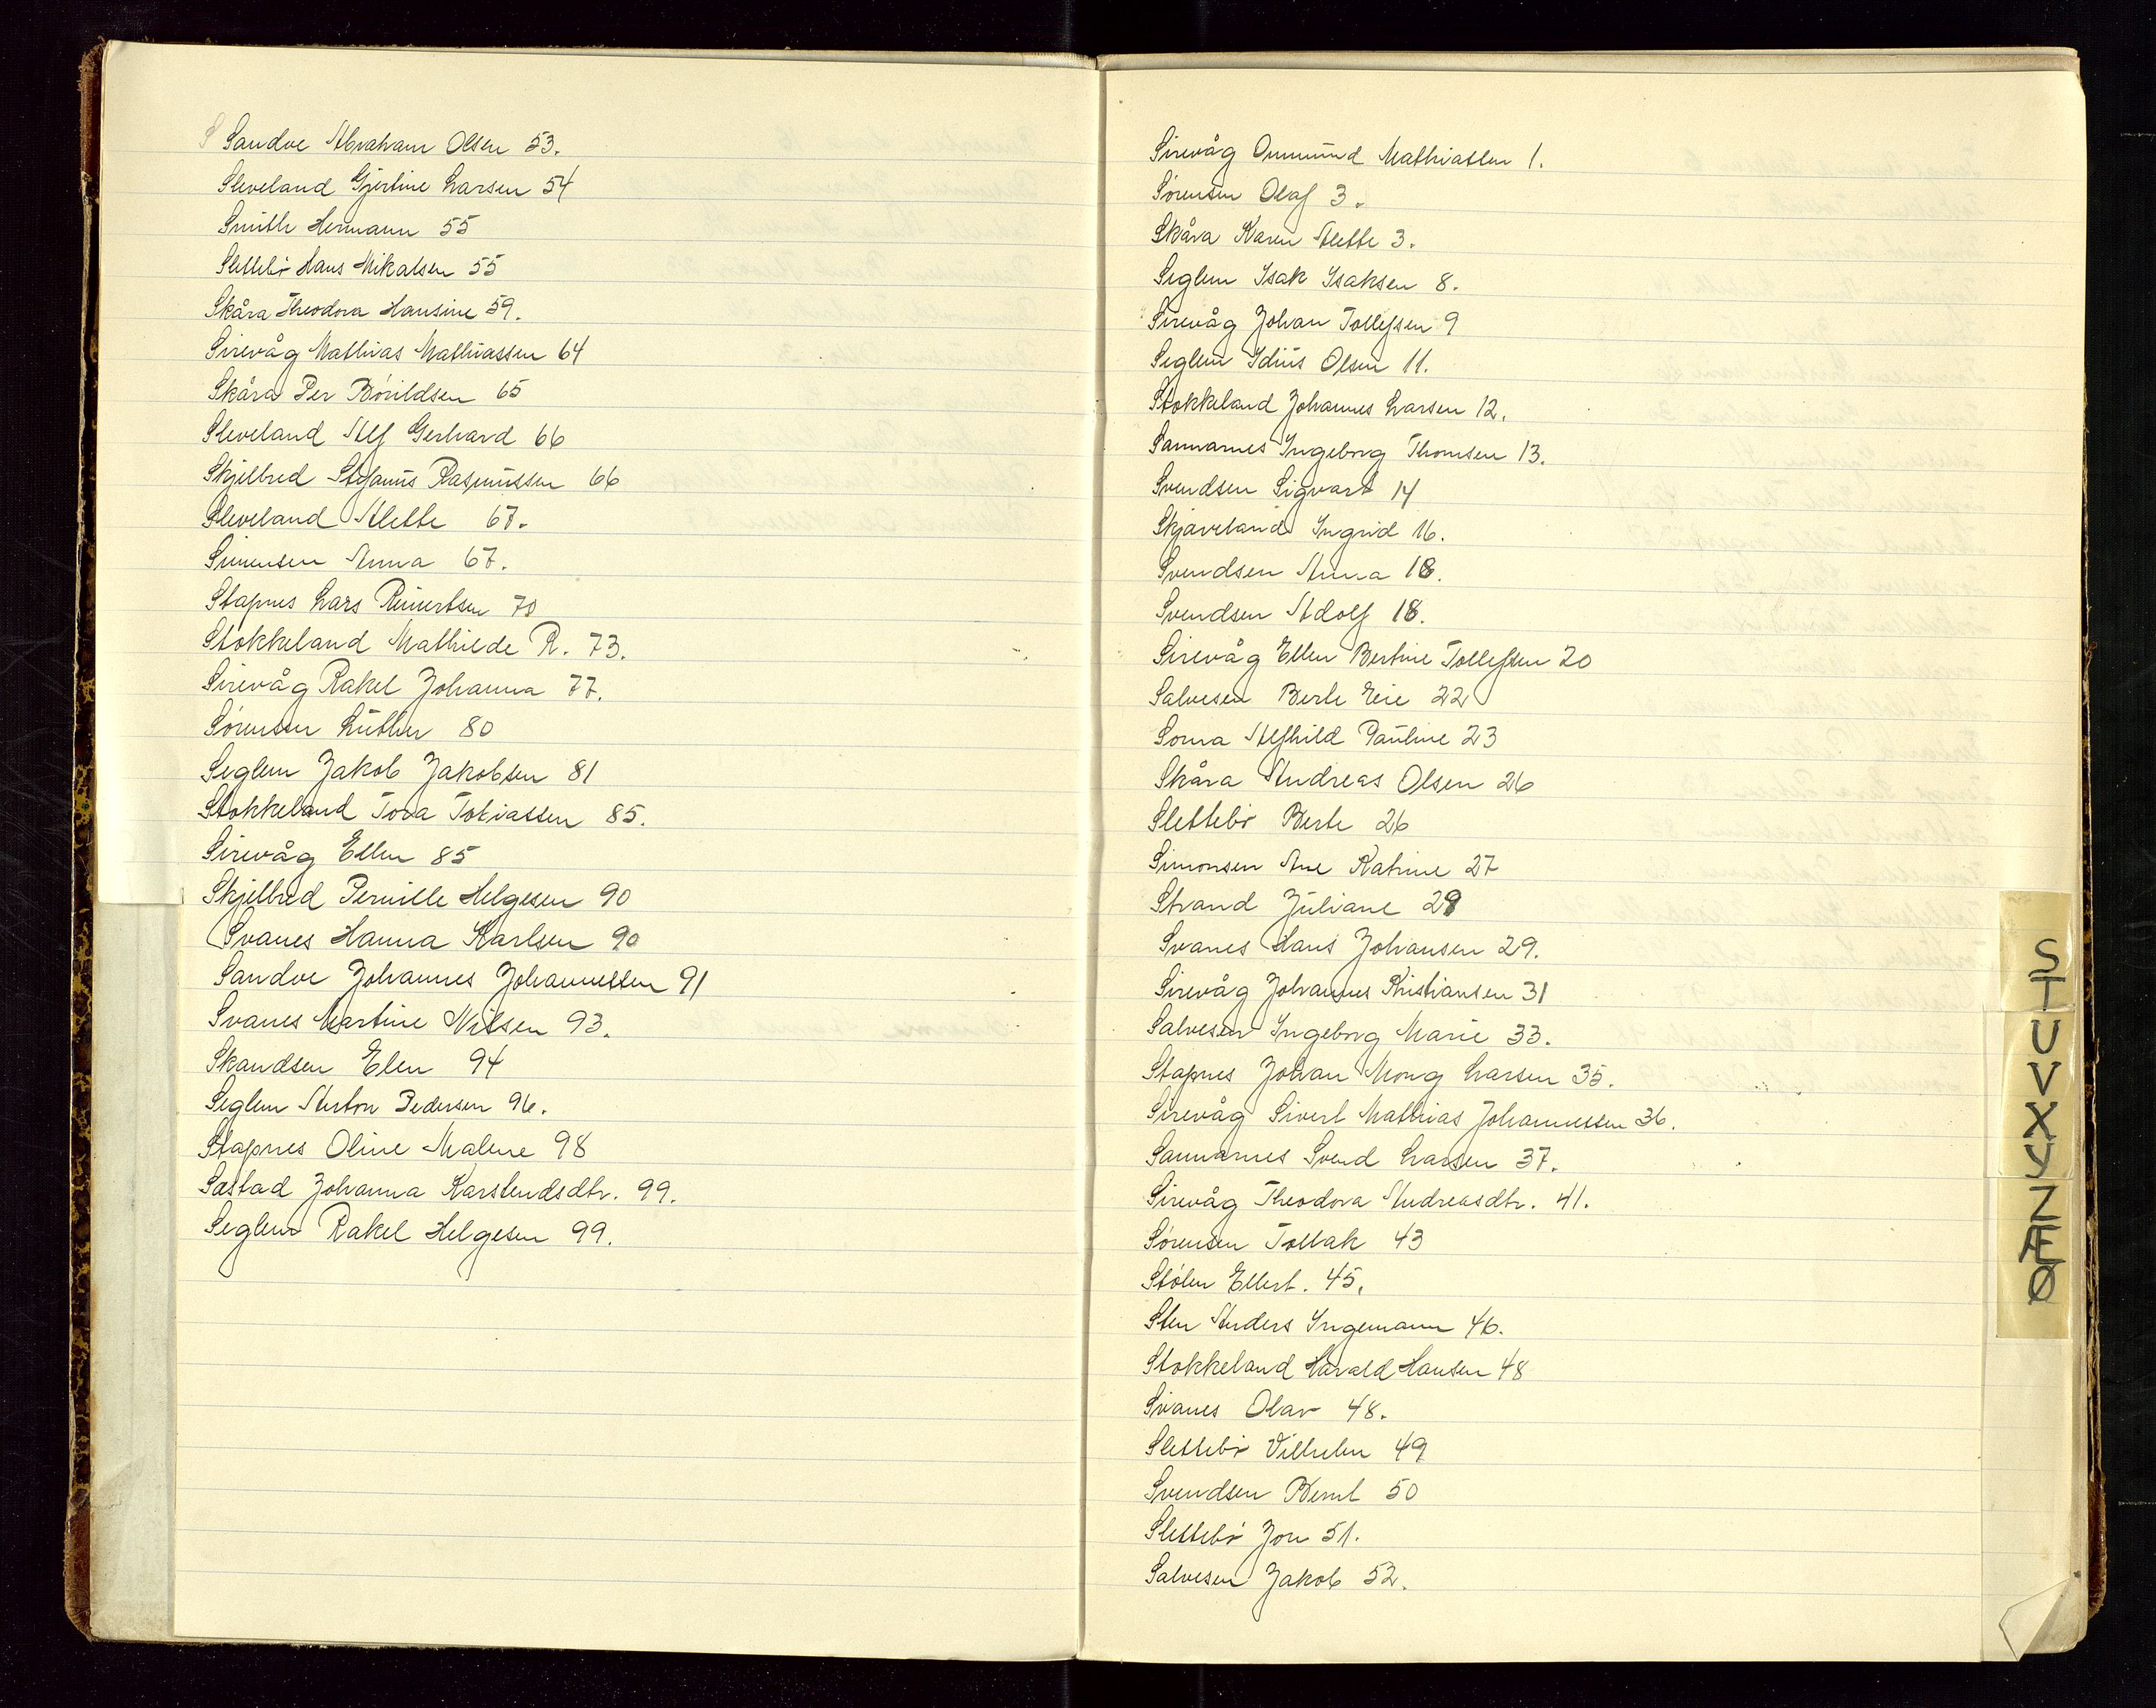 S Sandve Abraham Olsen 53.
Sleveland Gjertine Larsen 54
Smith Hermann 55
Slettebø Hans Mikalsen 55
Skåra Theodora Hansine 59.
Sirevåg Mathias Mathiassen 64
Skåra Per Bårildsen 65
Sleveland Alf Gerhard 66
Skjelbred Stefanus Rasmussen 66
Sleveland Alette 67.
Simensen Anna 67.
Stapnes Lars Reinertsen 70
Stokkeland Mathilde R. 73.
Sirevåg Rakel Johanna 77.
Sørensen Luther 80
Seglem Jakob Jakobsen 81
Stokkeland Tora Tobiassen 85.
Sirevåg Ellen 85
Skjelbred Pernille Helgesen 90
Svanes Hanna Karlsen 90
Sandve Johannes Johannessen 91
Svanes Martine Nilsen 93.
Skandsen Elen 94
Seglem Anton Pedersen 96.
Stapnes Oline Malene 98
Sæstad Johanna Karstendsdtr. 99.
Seglem Rakel Helgesen 99.
Sirevåg Ommund Mathiassen 1.
Sørensen Olaf 3.
Skåra Karen Alette 3.
Seglem Isak Isaksen 8.
Sirevåg Johan Tollefsen 9
Seglem Idius Olsen 11.
Stokkeland Johannes Larsen 12.
Sannarnes Ingeborg Thomsen 13.
Svendsen Sigvart 14
Skjæveland Ingrid 16.
Svendsen Anna 18.
Svendsen Adolf 18.
Sirevåg Ellen Bertine Tollefsen 20
Salvesen Berte Eie 22
Soma Alfhild Pauline 23
Skåra Andreas Olsen 26
Slettebø Berte 26
Simonsen Ane Katrine 27
Strand Juliane 28
Svanes Hans Johansen 29.
Sirevåg Johannes Kristiansen 31
Salvesen Ingeborg Marie 33.
Stapnes Johan Mong Larsen 35.
Sirevåg Sivert Mathias Johannessen 36.
Sannarnes Svend Larsen 37.
Sirevåg Theodora Andreasdtr. 41.
Sørensen Tollak 43
Stølen Ellert. 45.
Sten Anders Ingemann 46.
Stokkeland Harald Hansen 48
Svanes Olav 48.
Slettebø Vilhelm 49
Svendsen Bernt 50
Slettebø Jon 51.
Salvesen Jakob 52.
S
T
U
V
X
Y
Z
Æ
Ø